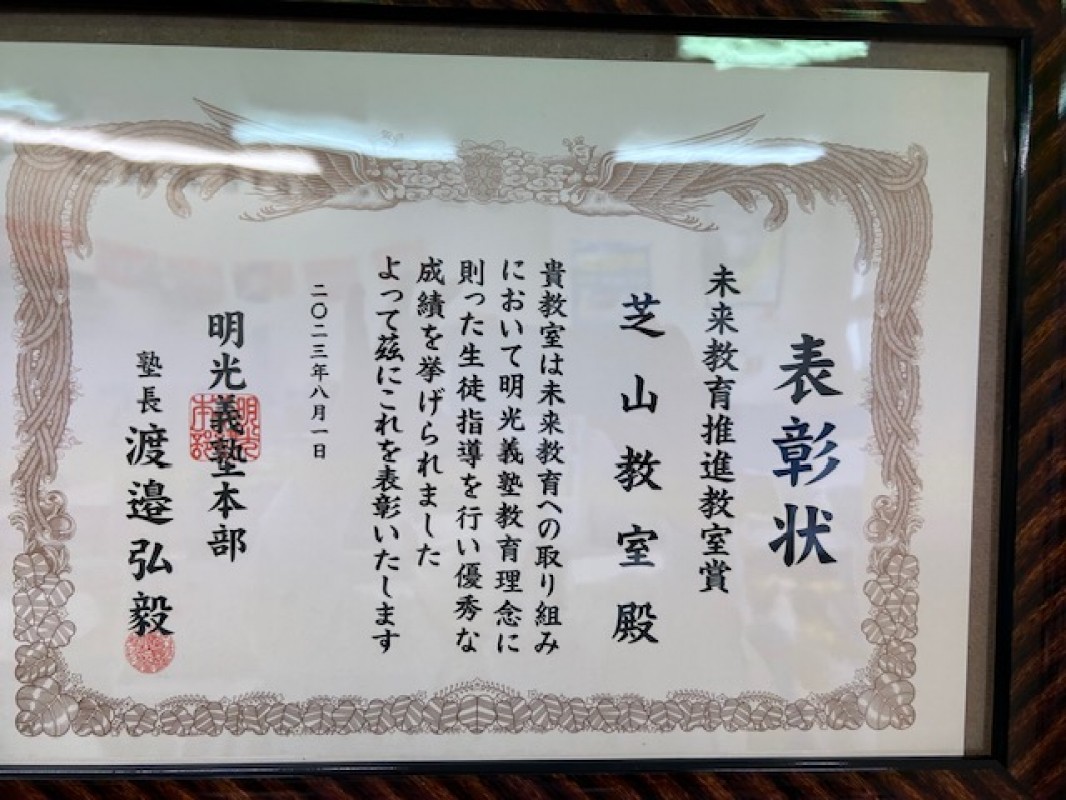 表彰状
未来教育推進教室賞
芝山教室殿
貴教室は未来教育への取り組み
において明光義塾教育理念に
則った生徒指導を行い優秀な
成績を挙げられました
よって茲にこれを表彰いたします
二〇二三年八月一日
明光義塾本部
塾長 渡邉弘毅